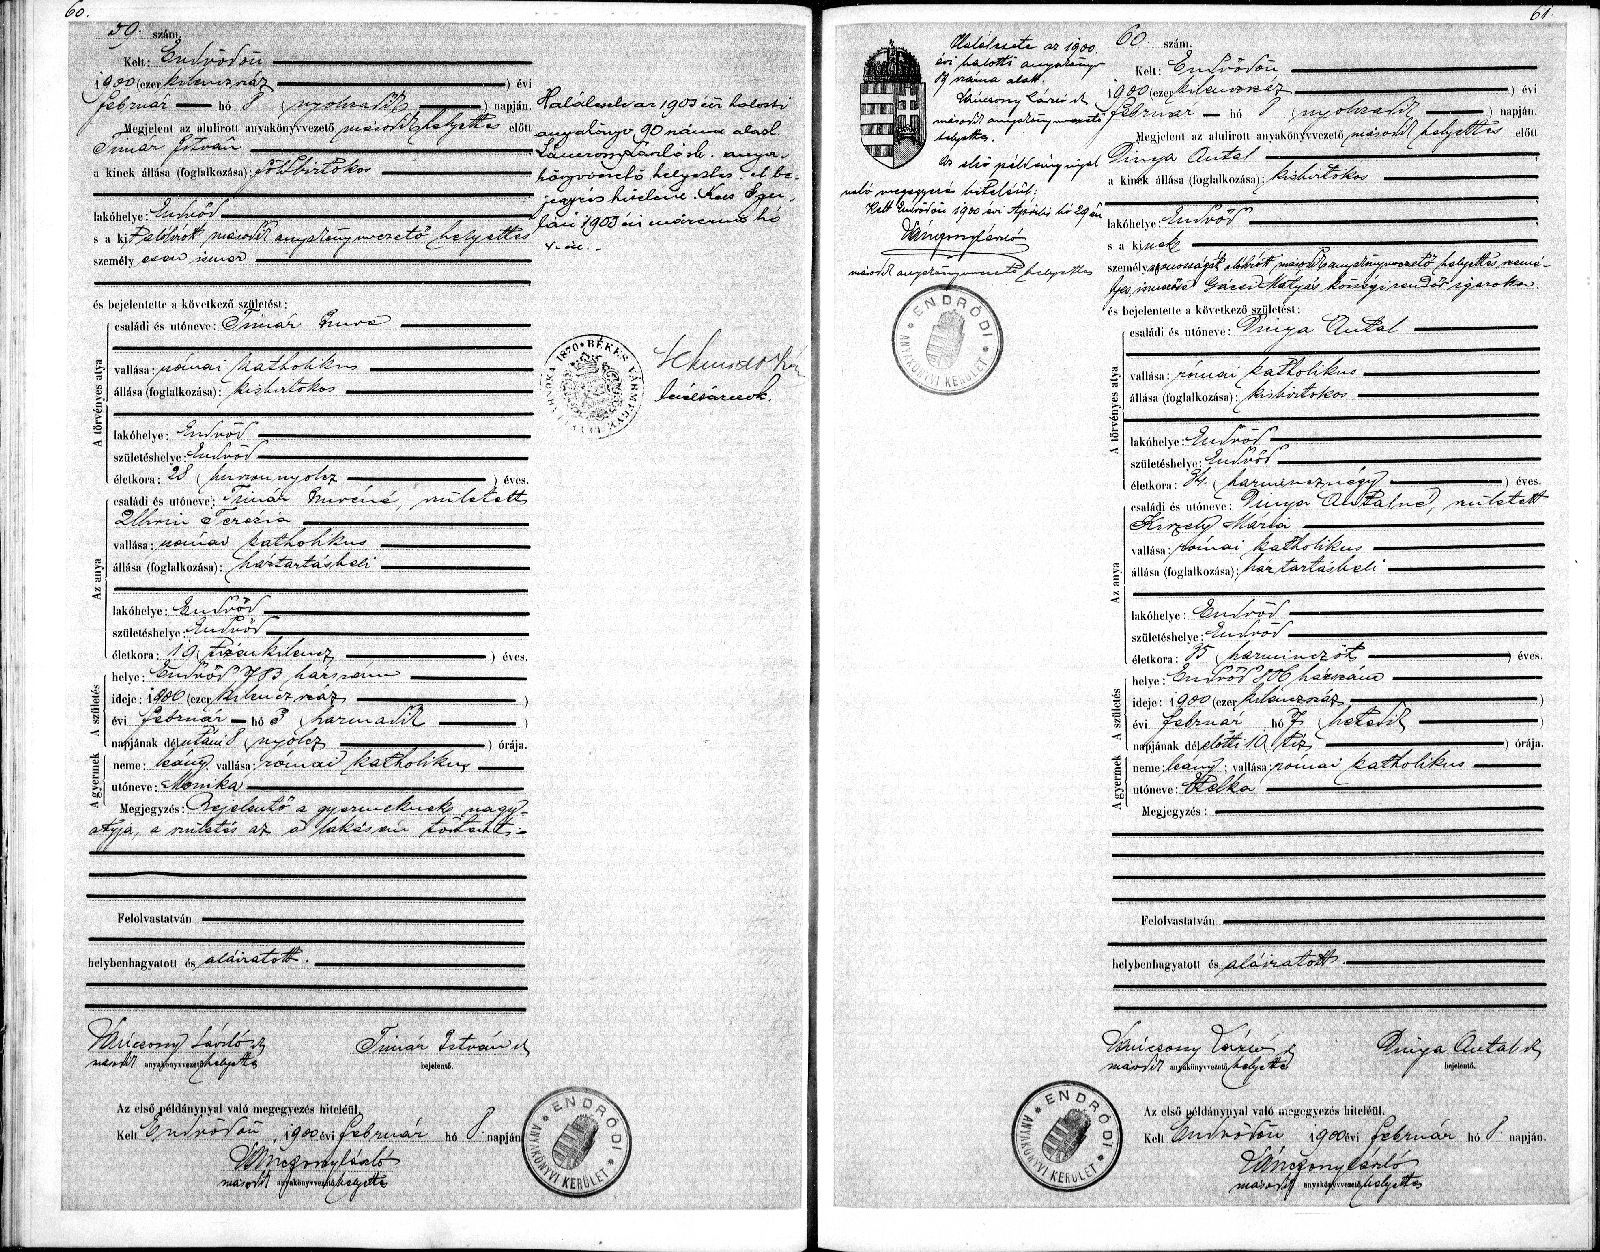 60.
59. szám.
Kelt: Endrődön
1900 (ezer kilenczszáz) évi
február hó 8 (nyolczadik) napján.
Megjelent az alulirott anyakönyvvezető második helyettes előtt
Timár István
a kinek állása (foglalkozása): földbirtokos
lakóhelye: Endrőd
s a kit alólirott második anyakönyvvezető helyettes
személyesen ismer
és bejelentette a következő születést:
A törvényes atya
családi és utóneve: Timár Imre
vallása: római katholikus
állása (foglalkozása): kisbirtokos
lakóhelye: Endrőd
születéshelye: Endrőd
életkora: 28 (huszonnyolcz) éves.
Az anya
családi és utóneve: Timár Imréné, született
Uhrin Terézia
vallása: római katholikus
állása (foglalkozása): háztartásbeli
lakóhelye: Endrőd
születéshelye: Endrőd
életkora: 19 (tizenkilencz) éves.
A születés
helye: Endrőd 783 házszám
ideje: 1900 (ezer kilenczszáz)
évi február hó 3 (harmadik)
napjának délutáni 8 (nyolcz) órája.
A gyermek
neme: leány; vallása: római katholikus
utóneve: Monika
Megjegyzés: Bejelentő a gyermeknek nagy-
atyja, a születés az ő lakásán történt.
Felolvastatván
helybenhagyatott és aláiratott.
Váncsony László sk Timár István sk
második anyakönyvvezető helyettes bejelentő.
Az első példánynyal való megegyezés hiteléül.
Kelt Endrődön, 1900 évi február hó 8. napján
Váncsony László
második anyakönyvvezető helyettes
ENDRŐDI ANYAKÖNYVI KERÜLET
Halálesete az 1903 évi halotti
anyakönyv 90 száma alatt
Váncsony László sk. anya-
könyvvezető helyettes. A be-
jegyzés hiteléül.
1903 évi márczius hó
1870 BÉKÉS VÁRMEGYE
61.
60 szám.
Kelt: Endrődön
1900 (ezer kilenczszáz) évi
február hó 8 (nyolczadik) napján.
Megjelent az alulirott anyakönyvvezető második helyettes előtt
Dinya Antal
a kinek állása (foglalkozása): kisbirtokos
lakóhelye: Endrőd
s a kinek
személyazonosságát alólirott második anyakönyvvezető helyettes szemé-
lyes ismerőse Gácsi Mátyás községi rendőr igazolta
és bejelentette a következő születést:
A törvényes atya
családi és utóneve: Dinya Antal
vallása: római katholikus
állása (foglalkozása): kisbirtokos
lakóhelye: Endrőd
születéshelye: Endrőd
életkora: 34 (harmincznégy) éves.
Az anya
családi és utóneve: Dinya Antalné, született
Kiszely Mária
vallása: római katholikus
állása (foglalkozása): háztartásbeli
lakóhelye: Endrőd
születéshelye: Endrőd
életkora: 35 (harminczöt) éves.
A születés
helye: Endrőd 806 házszám
ideje: 1900 (ezer kilenczszáz)
évi február hó 7 (hetedik)
napjának délelőtti 10 (tíz) órája.
A gyermek
neme: leány; vallása: római katholikus
utóneve: Etelka
Megjegyzés:
Felolvastatván
helybenhagyatott és aláiratott.
Váncsony László sk Dinya Antal sk
második anyakönyvvezető helyettes bejelentő.
Az első példánynyal való megegyezés hiteléül.
Kelt Endrődön 1900 évi február hó 8 napján.
Váncsony László
második anyakönyvvezető helyettes
ENDRŐDI ANYAKÖNYVI KERÜLET
Halálesete az 1900
évi halotti anyakönyv
száma alatt.
Váncsony László sk
második anyakönyvvezető
helyettes.
Az első példánynyal
való megegyezés hiteléül:
Kelt Endrődön 1900 évi Április hó 29 én
Váncsony László
második anyakönyvvezető helyettes
ENDRŐDI ANYAKÖNYVI KERÜLET